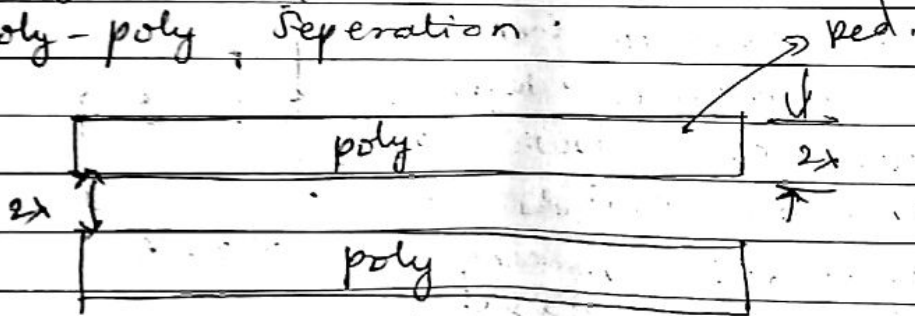 oly - poly Seperation :
Red.
poly.
2λ
2λ
poly